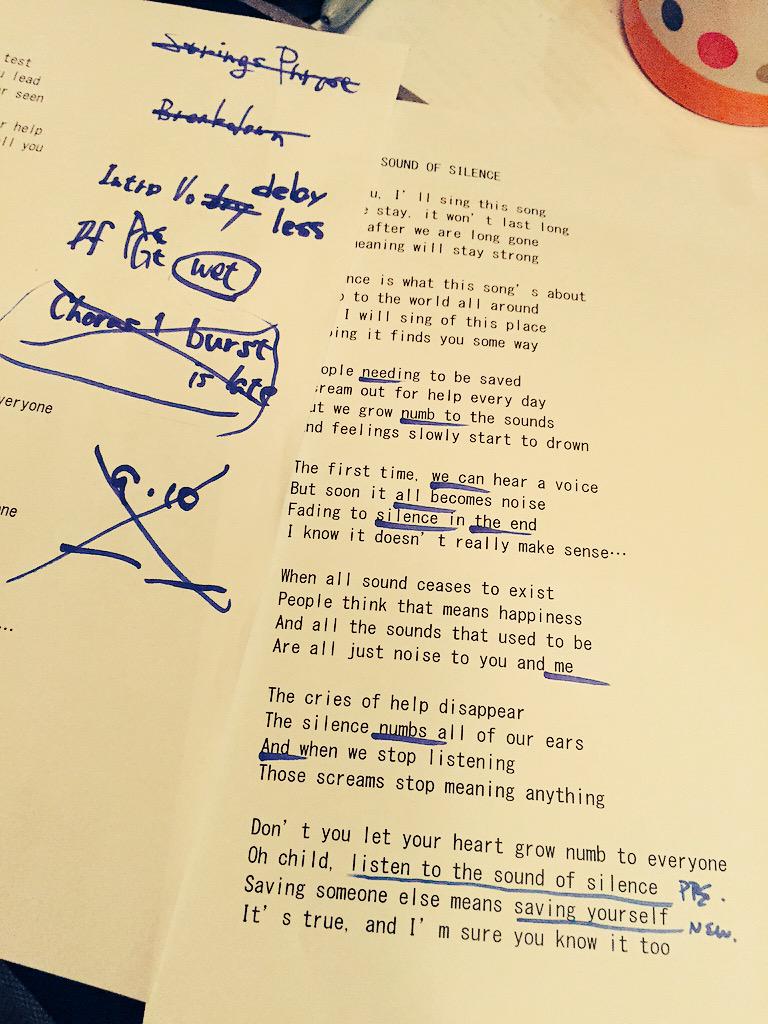 test
lead
seen
help
you
Strings Phrase
Breakdown
Intro Vo delay
less
Pf AG
Gt wet
Chorus 1 burst
is late
everyone
9.10
...
SOUND OF SILENCE
I'll sing this song
stay, it won't last long
after we are long gone
will stay strong
is what this song's about
to the world all around
I will sing of this place
it finds you some way
needing to be saved
out for help every day
we grow numb to the sounds
feelings slowly start to drown
The first time, we can hear a voice
But soon it all becomes noise
Fading to silence in the end
I know it doesn't really make sense…
When all sound ceases to exist
People think that means happiness
And all the sounds that used to be
Are all just noise to you and me
The cries of help disappear
The silence numbs all of our ears
And when we stop listening
Those screams stop meaning anything
Don't you let your heart grow numb to everyone
Oh child, listen to the sound of silence
Saving someone else means saving yourself NEW.
It's true, and I'm sure you know it too